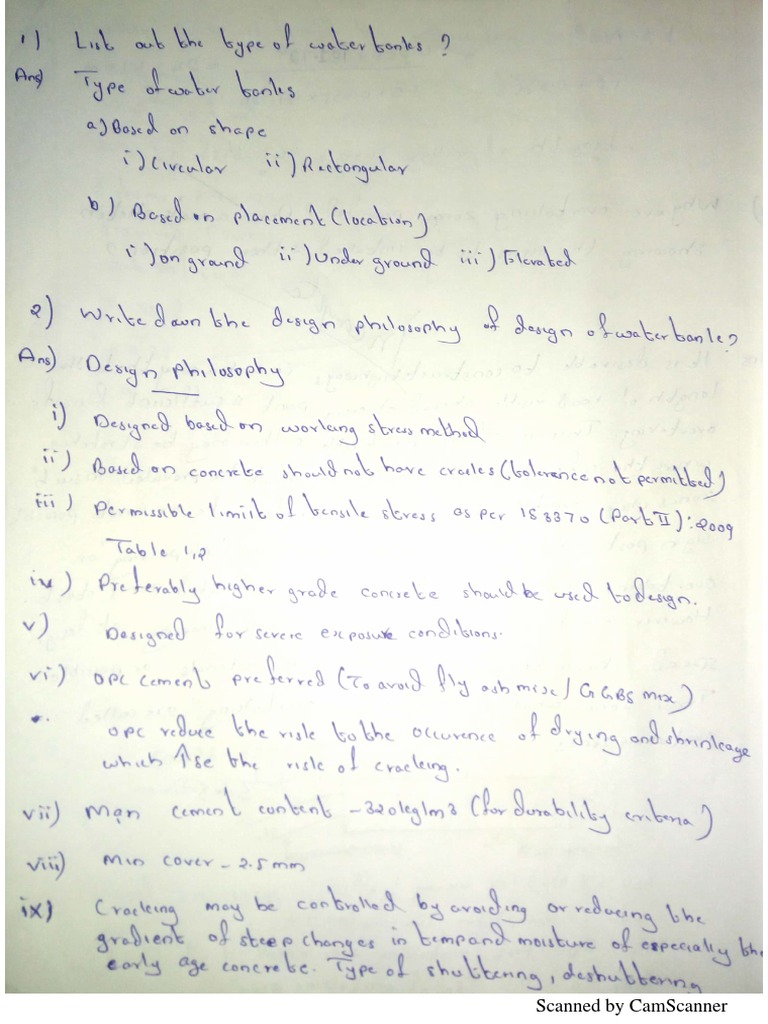 1) List out the type of water tanks ?
Ans) Type of water tanks
a) Based on shape
i) Circular ii) Rectongular
b) Based on placement (location)
i) on ground ii) Under ground iii) Elevated
2) Write down the design philosophy of design of water tank?
Ans) Design philosophy
i) Designed based on working stress method
ii) Based on concrete should not have cracks (tolerence not permitted)
iii) Permissible limit of tensile stress as per IS 3370 (Part II) : 2009
Table 1,2
iv) Preferably higher grade concrete should be used to design.
v) Designed for severe exposure conditions.
vi) OPC cement preferred (To avoid fly ash mix / GGBS mix)
OPC reduce the risk to the occurence of drying and shrinkage
which ↑se the risk of cracking.
vii) cement content - 320kg/m3 (for durability criteria)
viii) Min cover - 2.5mm
ix) Cracking may be controlled by avoiding or reducing the
gradient of steep changes in temp and moisture of especially the
early age concrete. Type of shuttering, deshuttering
Scanned by CamScanner